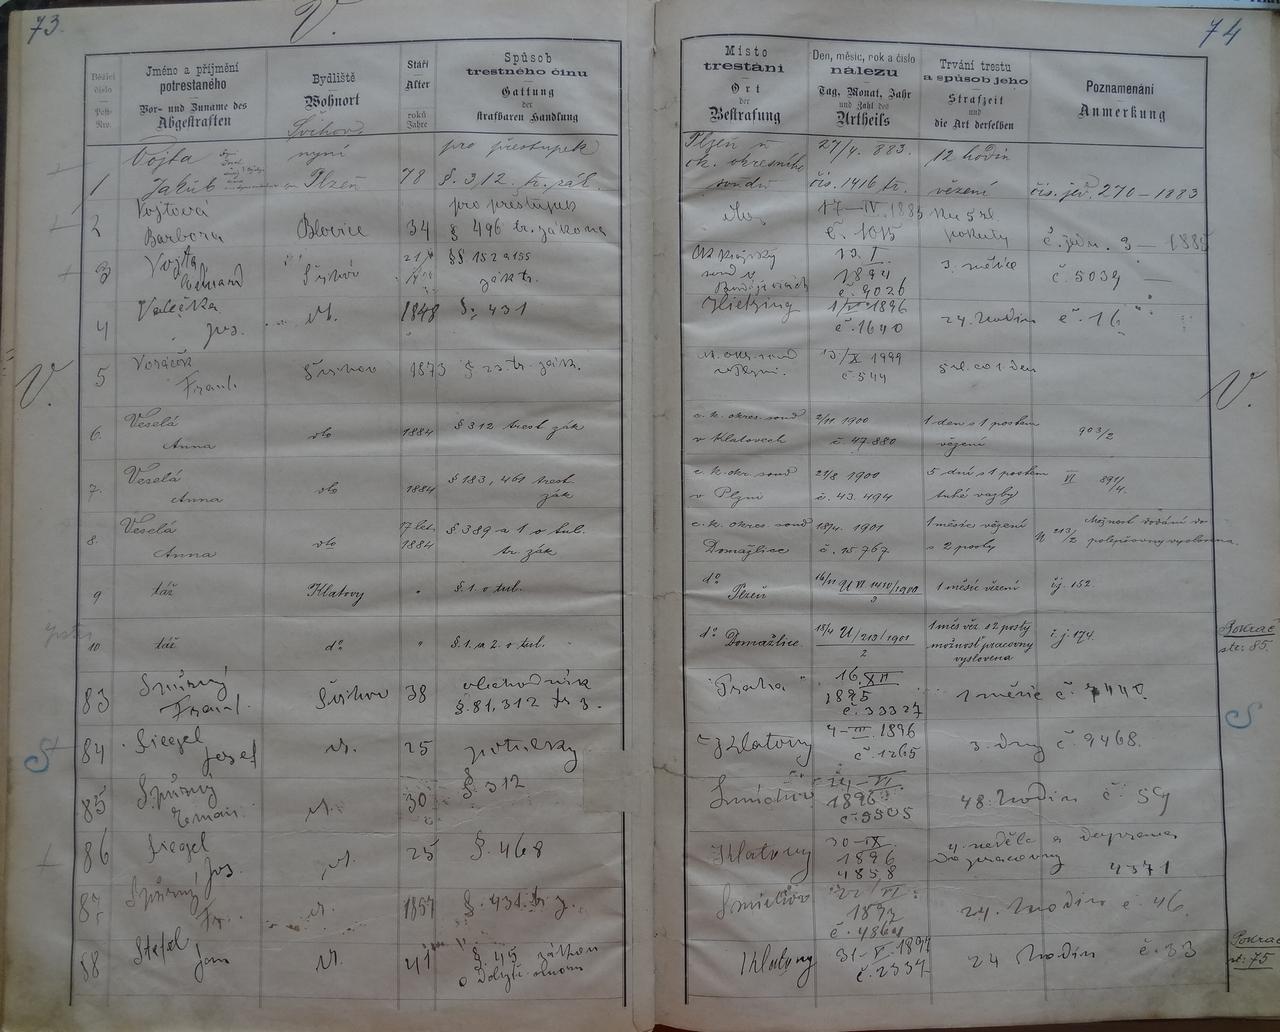 73.
V.
74
Běžící číslo
Post-Nro.
Jméno a příjmění
potrestaného
Vor- und Zuname des
Abgestraften
Bydliště
Wohnort
Stáří
Alter
roků
Jahre
Spůsob
trestného činu
Gattung
der
strafbaren Handlung
Místo
trestání
Ort
der
Bestrafung
Den, měsíc, rok a číslo
nálezu
Tag, Monat, Jahr
und Zahl des
Urtheils
Trvání trestu
a spůsob jeho
Strafzeit
und
die Art derselben
Poznamenání
Anmerkung
1 Vojta Jakub
Švihov nyní Plzeň
78
pro přestupek §. 312. tr. zák.
Plzeň
ck. okresního soudu
27/4. 883. čís. 1416 tr.
12 hodin vězení
čís. jed. 270 - 1883
2 Vojtová Barbora
Blovice
34
pro přestupek § 496 tr. zákona
17-IV. 1885 č. 1015
5 zl. pokuty
č. jedn. 3 - 1885
3 Vojta
Švihov
§§ 152 a 155 zák tr.
ck Krajský soud v Budějovicích
13. I. 1894 č. 9026
3. měsíce
č. 5039
4 Jos.
1848
§. 431
Hietzing
1896 č. 1640
24. hodin
č. 16
5 Voráček Frant.
Švihov
1873
§ 23. tr. zák.
ck. okr. soud v Plzni
/X 1899 č 544
5 zl. co 1 den
6. Veselá Anna
dto
1884
§ 312 trest zák
c. k. okres. soud v Klatovech
2/11 1900 č. 47.880
1 den s 1 postem vězení
903/2
7. Veselá Anna
dto
1884
§ 183, 461 trest. zák
c. k. okr. soud v Plzni
21/8 1900 č. 43.494
5 dní s 1 postem tuhé vazby
VI 891/4.
8. Veselá Anna
dto
17 let. 1884
§. 389 a 1 o tul. tr. zák
c. k. okres. soud Domažlice
18/4. 1901 č. 15767
1 měsíc vězení s 2 posty
U 213/2 Možnost dodání do polepšovny vyslovena.
9 táž
Klatovy
"
§. 1. o tul.
do Plzeň
16/11 U VI 1410/1900 3
1 měsíc vězení
čj. 152.
10 táž
do
"
§. 1. a 2. o tul.
do Domažlice
18/4 U/213/1901 2
1 měs věz. s 2 posty možnosť pracovny vyslovena
č. j 174.
Pokrač
str: 85.
83 Spurný Frant.
Švihov
38
§. 81, 312 tr z.
Praha
16. XII 1895 č. 33327
1 měsíc
84 Siegel Josef
dt.
25
potulky
Klatovy
4-III. 1896 č. 1265
3. dny
č. 9468.
85 Spurný Roman
dt.
30
§. 312
Smíchov
24-VI 1896 č. 9505
48. hodin
č. 59
86 Siegel Jos.
dt.
25
§. 468
Klatovy
30-IX. 1896 4858
4 neděle a doprava do pracovny
4371
87. Spurný Fr.
dt.
1857
§. 431. tr z.
Smíchov
22/VI. 1897 č. 4864
24. hodin
č. 46.
88 Stefel Jan
dt.
41
§. 45 zákon
Klatovy
31-V. 1897 č. 2337
24 hodin
č. 33
Pokrač
st: 75
V.
V.
S
S